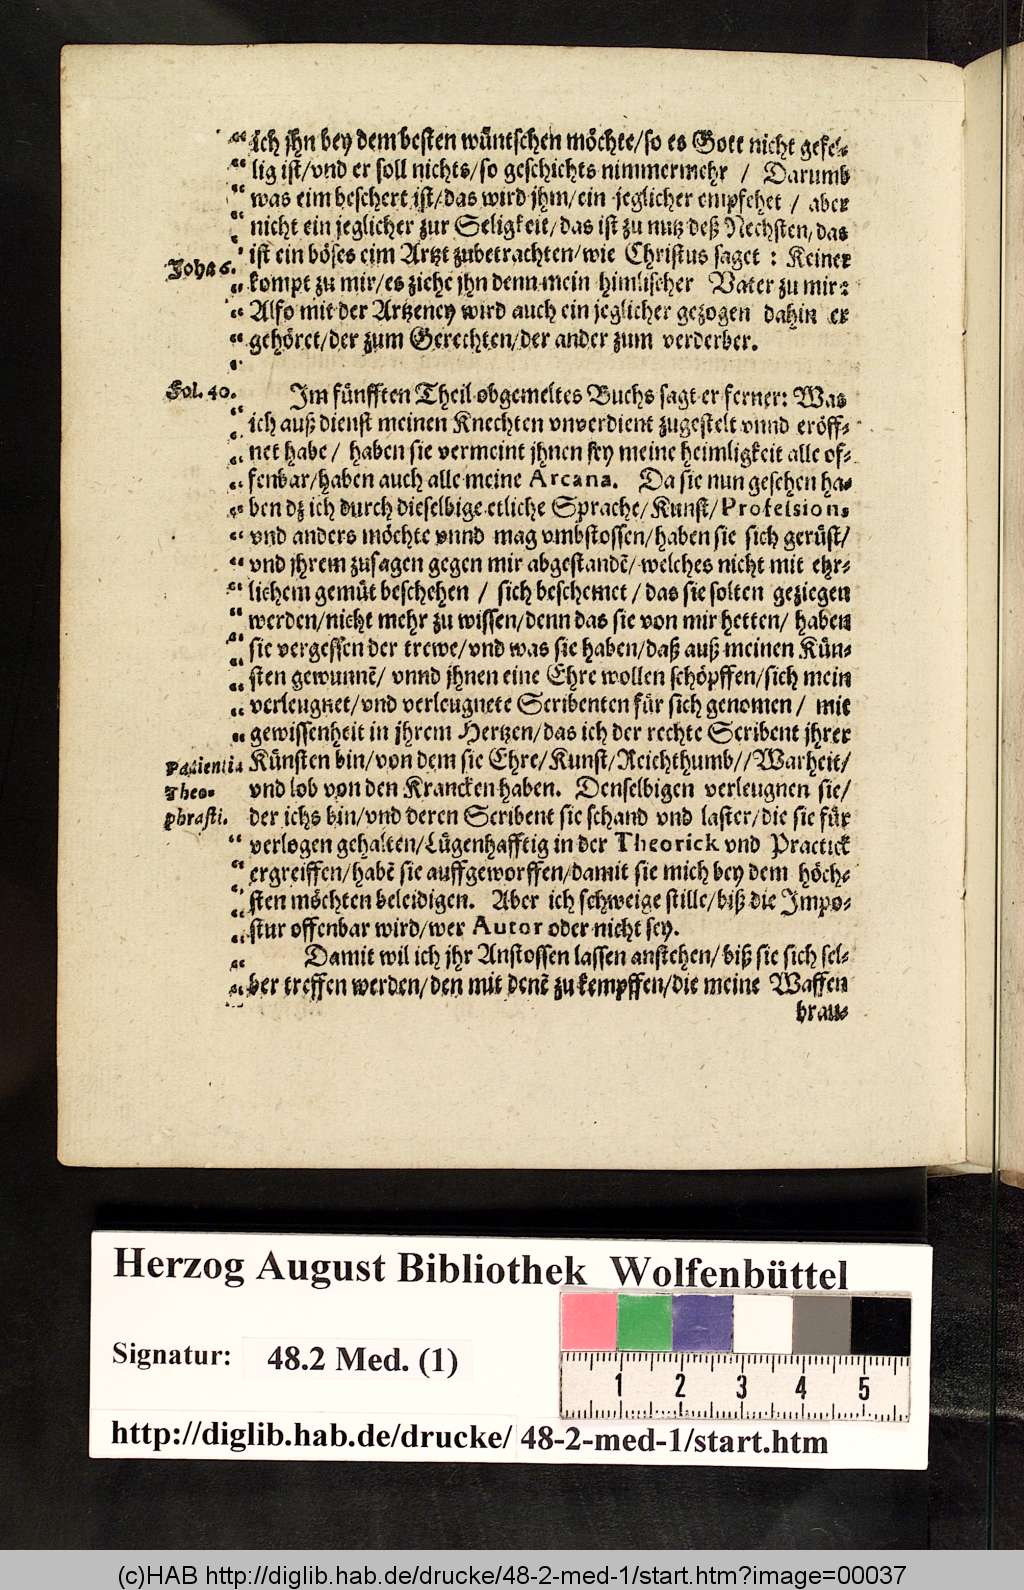 ich jhn bey dem besten wüntschen möchte/so es Gott nicht gefel⸗
lig ist/vnd er soll nichts/so geschichts nimmermehr / Darumb
was eim beschert ist/das wird jhm/ein jeglicher empfehet / aber
nicht ein jeglicher zur Seligkeit/das ist zu nutz deß Nechsten/das
ist ein böses eim Artzt zubetrachten/wie Christus saget : Keiner
Joha 6.
kompt zu mir/es ziehe jhn denn mein himlischer Vater zu mir:
Also mit der Artzeney wird auch ein jeglicher gezogen dahin er
gehöret/der zum Gerechten/der ander zum verderber.
Fol. 40.
Im fünfften Theil obgemeltes Buchs sagt er ferner: Was
ich auß dienst meinen Knechten vnverdient zugestelt vnnd eröff⸗
net habe / haben sie vermeint jhnen sey meine heimligkeit alle of⸗
fenbar/haben auch alle meine Arcana. Da sie nun gesehen ha⸗
ben dz ich durch dieselbige etliche Sprache/Kunst/Profession,
vnd anders möchte vnnd mag vmbstossen/haben sie sich gerüst/
vnd jhrem zusagen gegen mir abgestandẽ/welches nicht mit ehr⸗
lichem gemüt beschehen / sich beschemet / das sie solten geziegen
werden/nicht mehr zu wissen/denn das sie von mir hetten/ haben
sie vergessen der trewe/vnd was sie haben/daß auß meinen Kün⸗
sten gewunnẽ/ vnnd jhnen eine Ehre wollen schöpffen/sich mein
verleugnet/vnd verleugnete Scribenten für sich genomen / mit
gewissenheit in jhrem Hertzen/das ich der rechte Scribent jhrer
Patientia
Theo⸗
phrasti.
Künsten bin/von dem sie Ehre/Kunst/Reichthumb//Warheit/
vnd lob von den Krancken haben. Denselbigen verleugnen sie/
der ichs bin/vnd deren Scribent sie schand vnd laster/die sie für
verlogen gehalten/Lügenhafftig in der Theorick vnd Practick
ergreiffen/habẽ sie auffgeworffen/damit sie mich bey dem höch⸗
sten möchten beleidigen. Aber ich schweige stille/biß die Impo⸗
stur offenbar wird/wer Autor oder nicht sey.
Damit wil ich jhr Anstossen lassen anstehen/biß sie sich sel⸗
ber treffen werden/den mit denẽ zu kempffen/die meine Waffen
brau⸗
Herzog August Bibliothek Wolfenbüttel
Signatur: 48.2 Med. (1)
1 2 3 4 5
http://diglib.hab.de/drucke/ 48-2-med-1/start.htm
(c)HAB http://diglib.hab.de/drucke/48-2-med-1/start.htm?image=00037